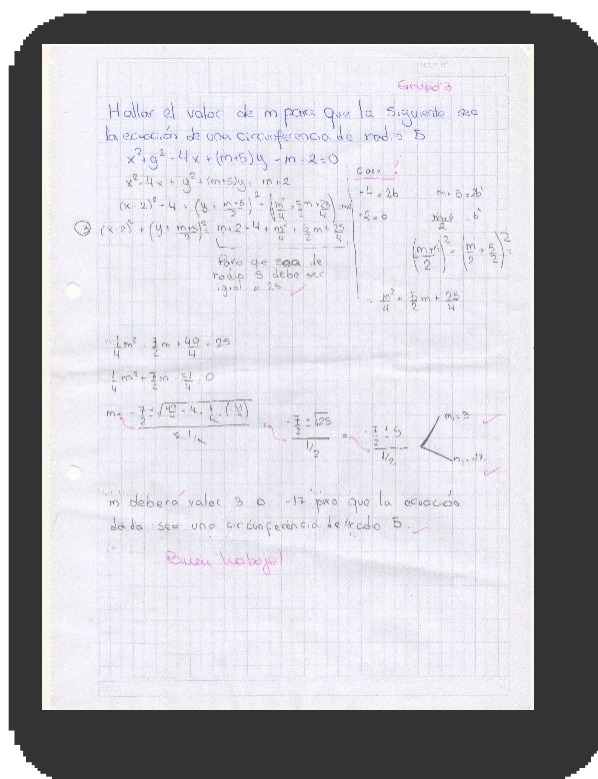 Grupo 3
Hallar el valor de m para que la siguiente sea
la ecuación de una circunferencia de radio 5
x²+y²-4x+(m+5)y-m-2=0
x²-4x+y²+(m+5)y = m+2
(x-2)²-4+(y+m+5/2)²-(m²/4+5/2m+25/4)=m+2
(x-2)²+(y+m+5/2)²=m+2+4+m²/4+5/2m+25/4
Para que sea de
radio 5 debe ser
igual a 25
-4=2b
-2=b
m+5=2b'
m+5/2=b'
(m+5/2)²=(m/2+5/2)²=
=m²/4+5/2m+25/4
1/4m²+7/2m+49/4=25
1/4m²+7/2m-51/4=0
m=
-7/2±√25
1/2
=
-7/2±5
1/2
m₁=3
m₂=-17
"m" deberá valer 3 o -17 para que la ecuación
dada sea una circunferencia de radio 5.
Buen trabajo!